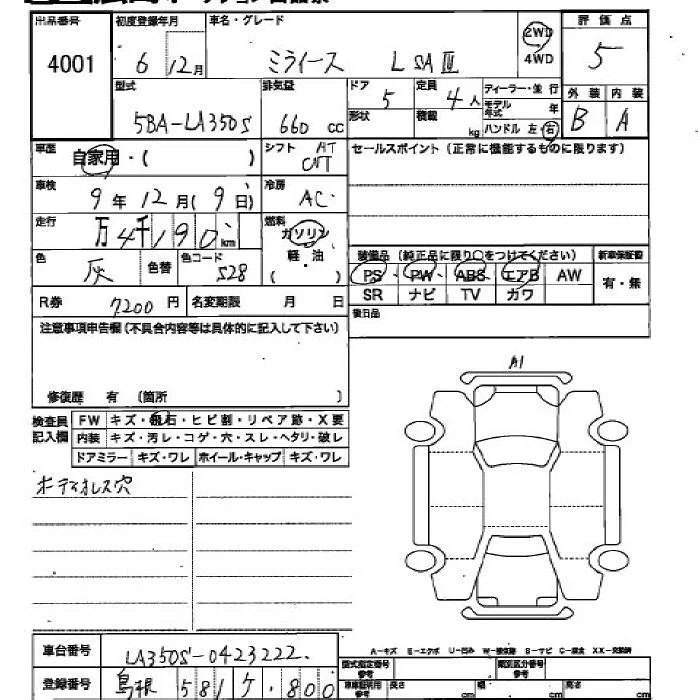 出品番号 初度登録年月 車名・グレード 評価点
4001 6 12月 ミライース L SAⅢ 2WD 4WD 5
型式 排気量 ドア 定員 ディーラー・並行 外装 内装
5BA-LA350S 660 cc 5 4人 モデル年式 年 B A
形状 積載 kg ハンドル 左・右
車歴 自家用・( ) シフト AT CVT セールスポイント(正常に機能するものに限ります)
車検 9年12月(9日) 冷房 AC
走行 万4千190km 燃料 ガソリン 軽・油 ( )
色 灰 色替 色コード S28
装備品(純正品に限り○をつけてください) 新車保証書
PS PW ABS エアB AW 有・無
SR ナビ TV カワ
R券 7200円 名変期限 月 日 後日品
注意事項申告欄(不具合内容等は具体的に記入して下さい)
修復歴 有 (箇所 )
A1
検査員記入欄 FW キズ・飛石・ヒビ割・リペア跡・X要
内装 キズ・汚レ・コゲ・穴・スレ・ヘタリ・破レ
ドアミラー キズ・ワレ ホイール・キャップ キズ・ワレ
オーディオレス穴
A-キズ E-エクボ U-凹み W-補修跡 S-サビ C-腐食 XX-交換済
車台番号 LA350S-0423222 型式指定番号 参考 類別区分番号 参考
登録番号 島根 581 ケ ・800 車庫証明用 参考 長さ cm 幅 cm 高さ cm